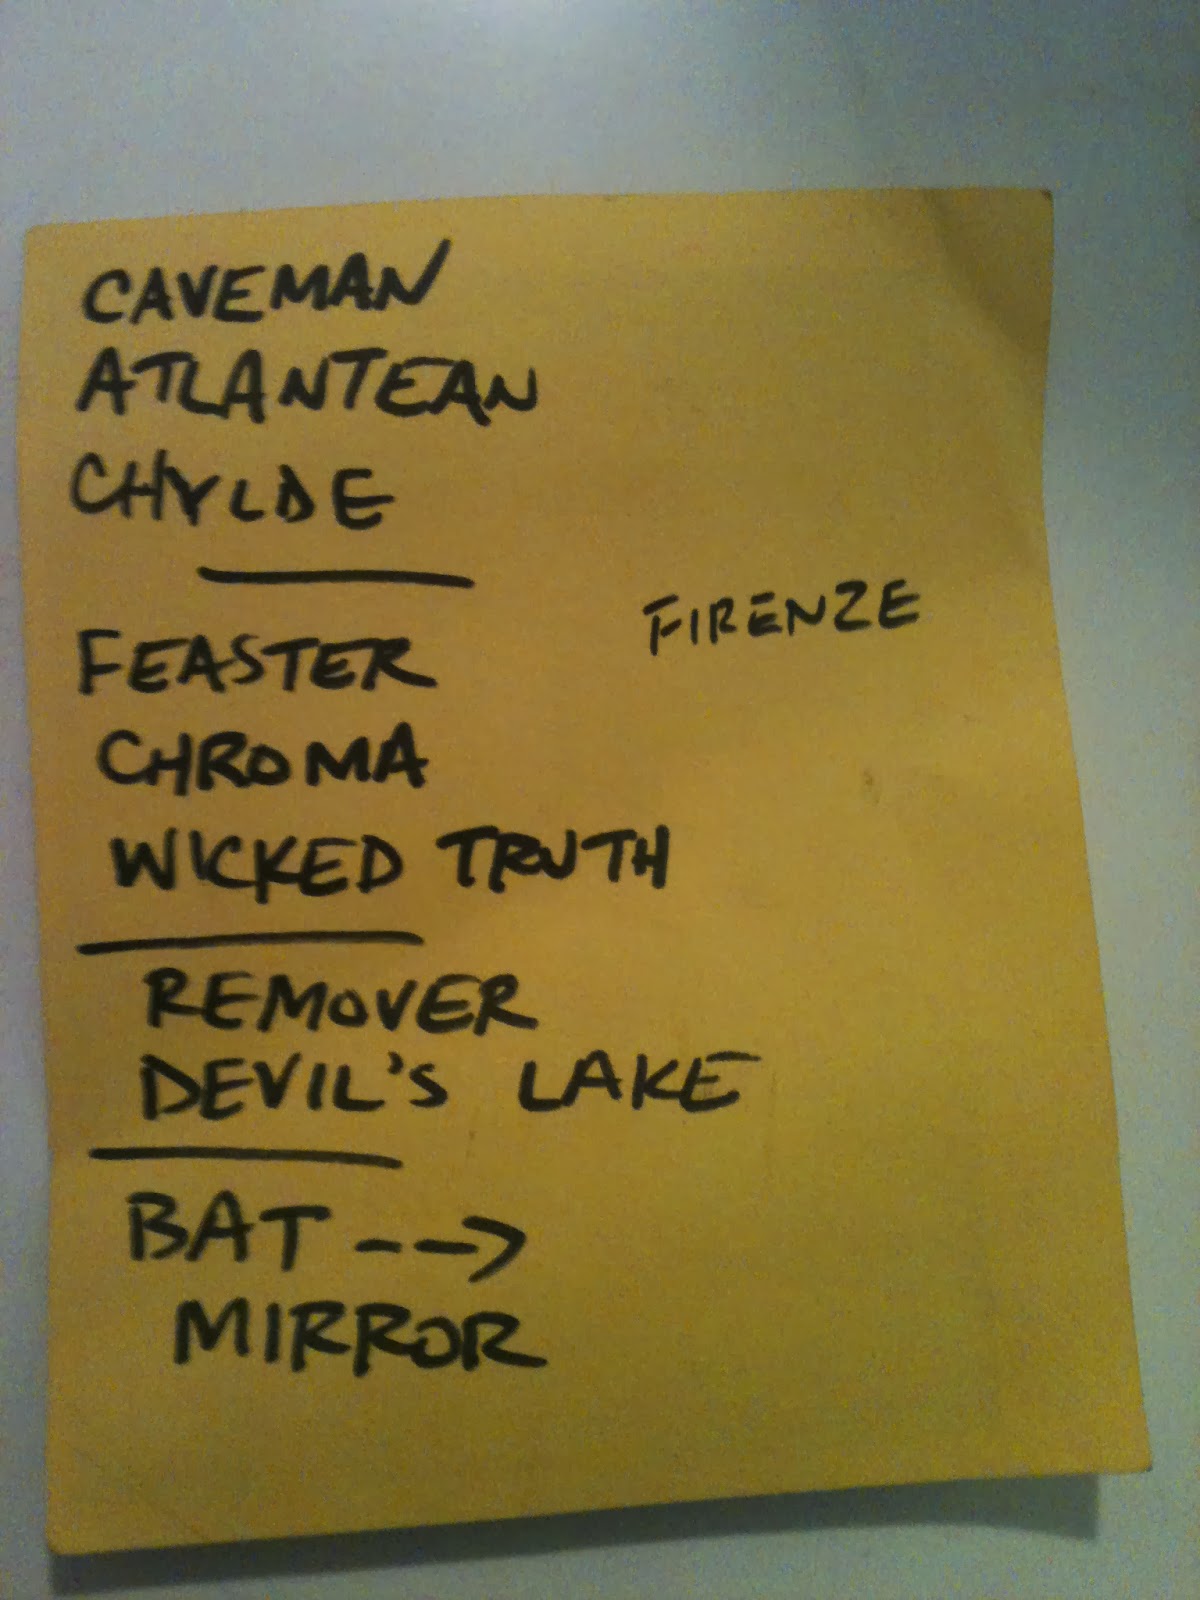 CAVEMAN
ATLANTEAN
CHYLDE
FIRENZE
FEASTER
CHROMA
WICKED TRUTH
REMOVER
DEVIL'S LAKE
BAT -->
MIRROR